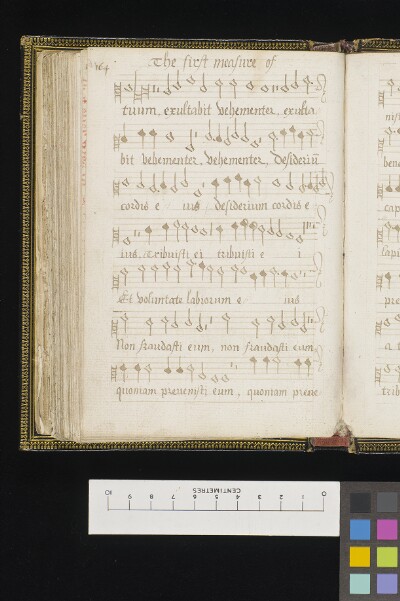 The first measure of
tuum, exultabit vehementer, exulta
bit vehementer, vehementer, desideriū
cordis e ius desiderium cordis e
ius, tribuisti ei tribuisti e i
Et voluntate labiorum e ius
Non fraudasti eum, non fraudasti eum,
quoniam prevenisti eum, quoniam preve
CENTIMETRES
0 1 2 3 4 5 6 7 8 9 10